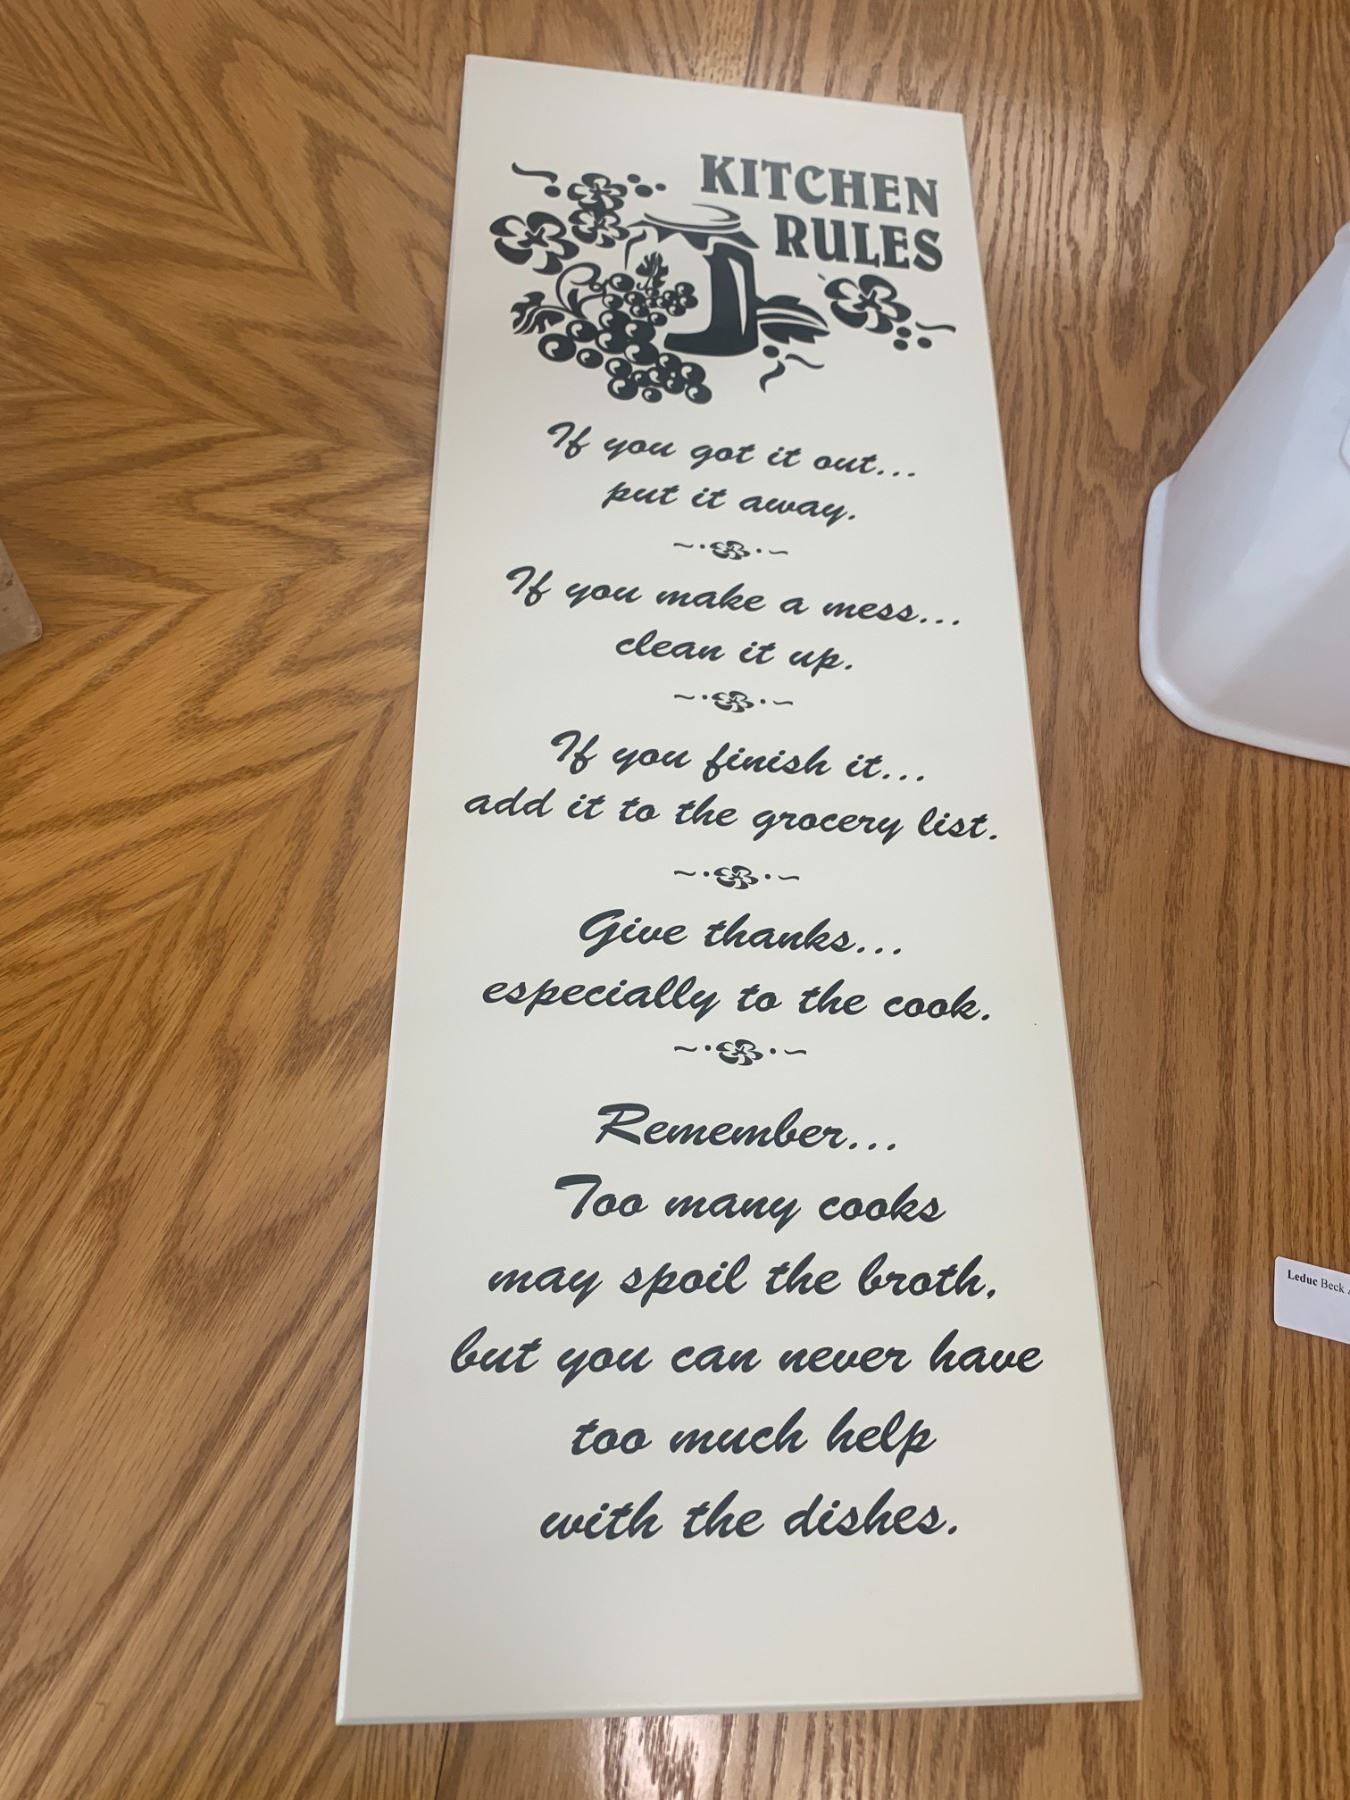 KITCHEN
RULES
If you got it out...
put it away.
If you make a mess...
clean it up.
If you finish it...
add it to the grocery list.
Give thanks...
especially to the cook.
Remember...
Too many cooks
may spoil the broth,
but you can never have
too much help
with the dishes.
Leduc Beck